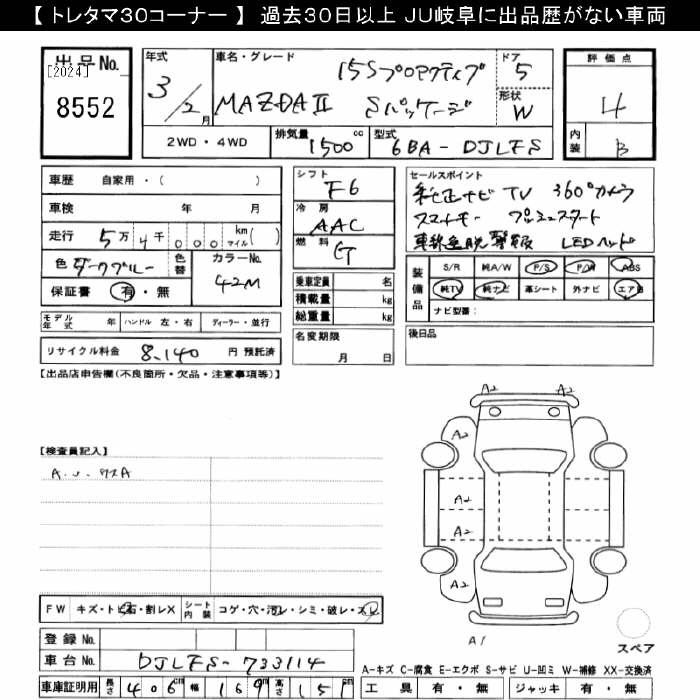 【 トレタマ30コーナー 】 過去30日以上 JU岐阜に出品歴がない車両
出品No.
[2024]
8552
年式
3/2月
車名・グレード
15Sプロアクティブ
MAZDAⅡ Sパッケージ
ドア
5
形状
W
評価点
4
内装
B
2WD・4WD
排気量 1500 cc
型式 6BA-DJLFS
車歴 自家用・( )
車検 年 月
走行 5万4千000 km マイル( )
色 ダークブルー
色替
カラーNo.
42M
保証書 有・無
シフト
F6
冷房
AAC
燃料
G
乗車定員 名
積載量 kg
総重量 kg
セールスポイント
純正ナビ TV 360°カメラ
スマートキー プッシュスタート
車線逸脱警報 LEDヘッド
装備品
S/R 純A/W P/S P/W ABS
純TV 純ナビ 革シート 外ナビ エアB
ナビ型番:
モデル年式 年 ハンドル 左・右 ディーラー・並行
リサイクル料金 8,140 円 預託済
名変期限
月 日
後日品
【出品店申告欄(不良箇所・欠品・注意事項等)】
【検査員記入】
A.U.キズA
A2 A2
A2
A2
A2
A2
A1
スペア
FW キズ・トビ石・割レX
シート内装 コゲ・穴・汚レ・シミ・破レ・スレ
登録No.
車台No. DJLFS-733114
車庫証明用 長さ 406cm 幅 169cm 高さ 151cm
A-キズ C-腐食 E-エクボ S-サビ U-凹ミ W-補修 XX-交換済
工具 有・無 ジャッキ 有・無